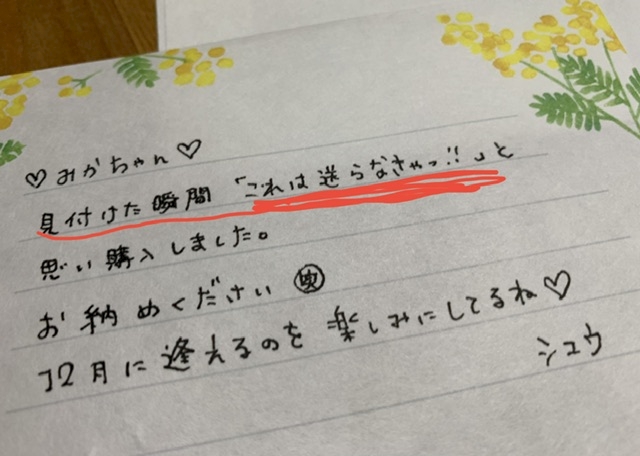 ♡みかちゃん♡
見付けた瞬間「これは送らなきゃっ!!」と
思い購入しました。
お納めください㊚
12月に逢えるのを楽しみにしてるね♡
シュウ